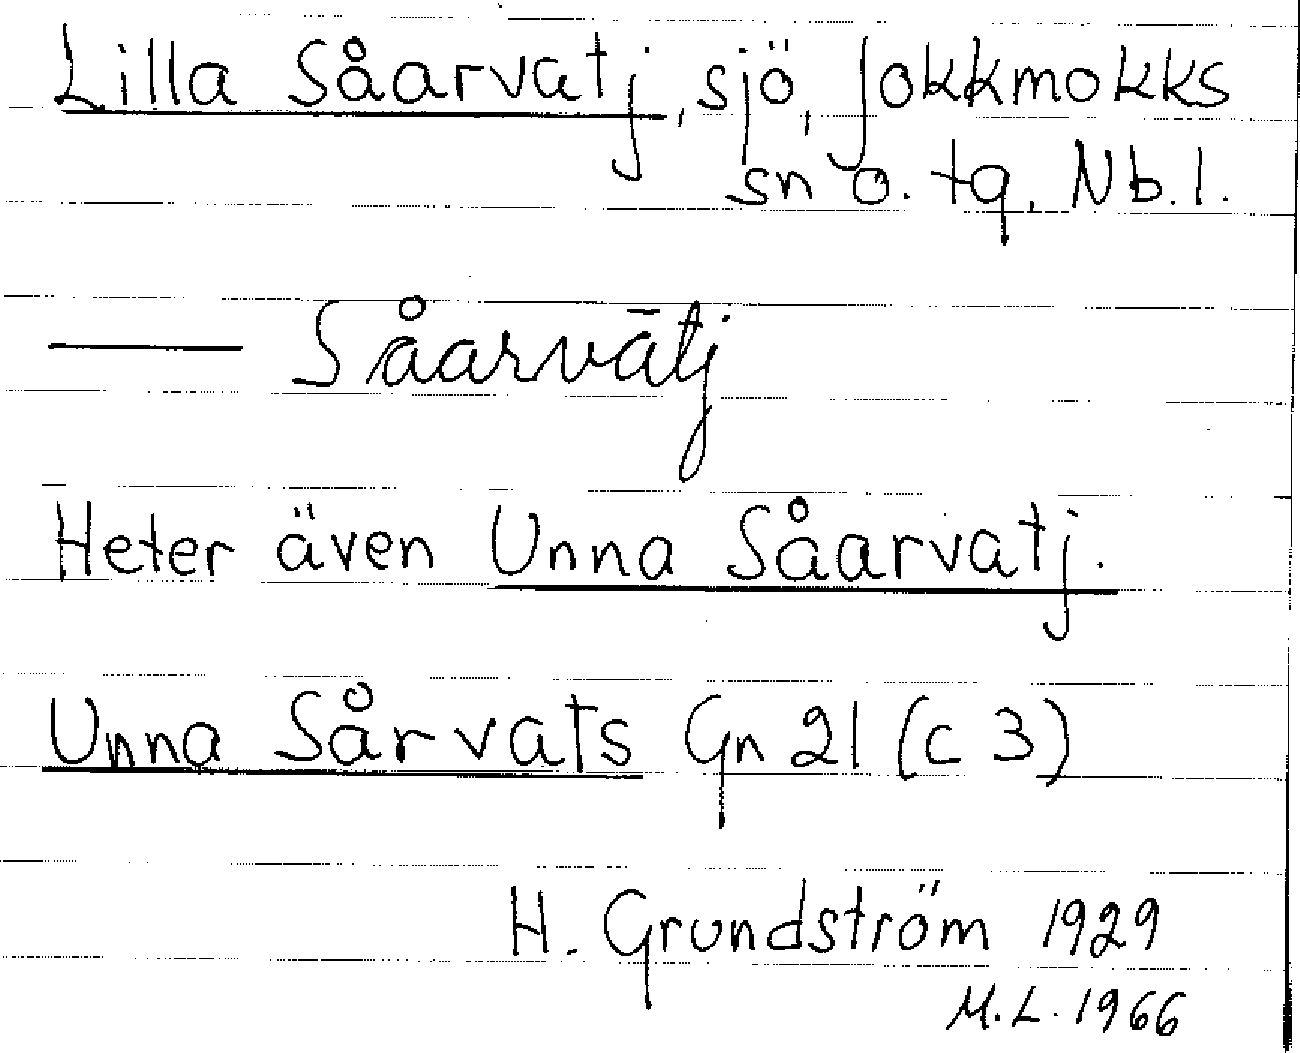 Lilla Såarvatj, sjö, Jokkmokks
sn o. tg, Nb.l.
—— Såarvātj
Heter även Unna Såarvatj.
Unna Sårvats Gn 21 (C 3)
H. Grundström 1929
M.L. 1966